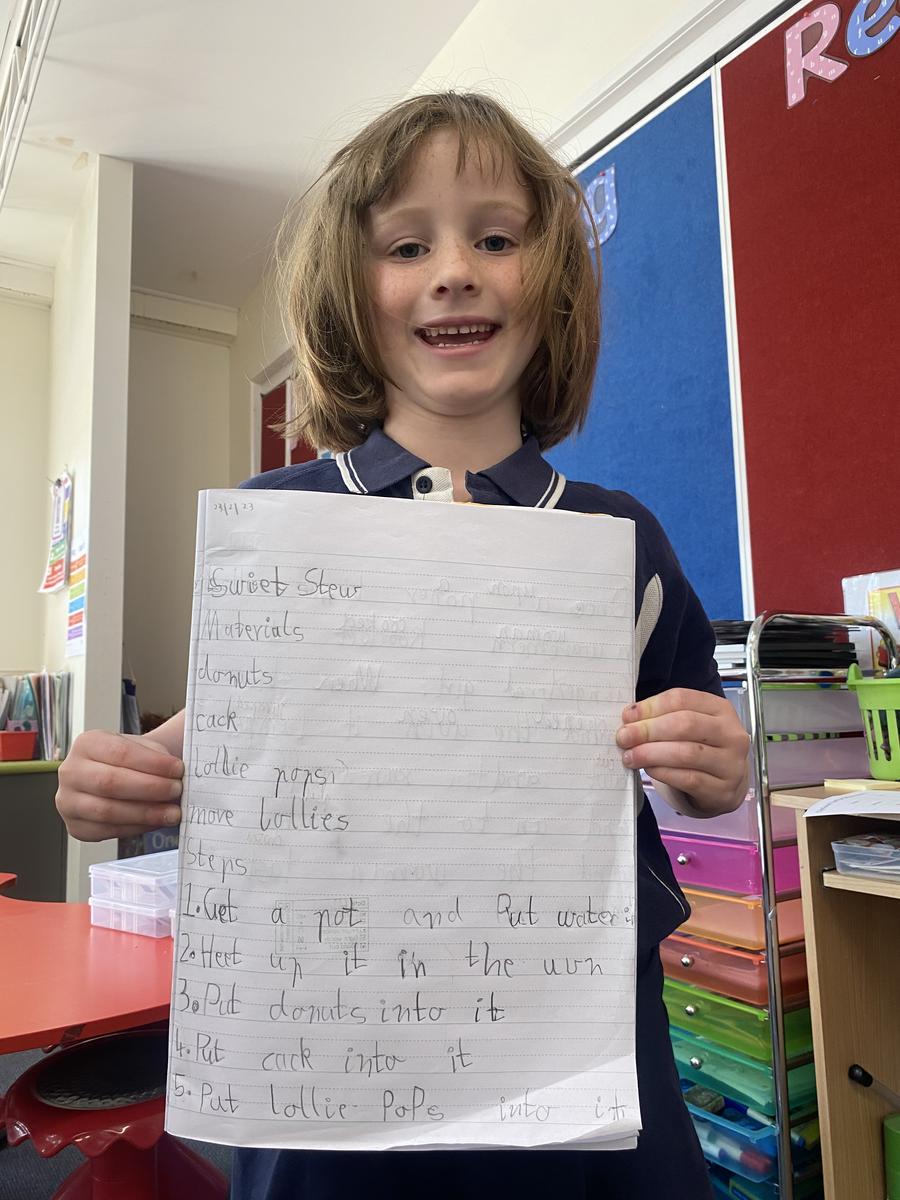 Re
g
23/2/23
Swiet Stew
Materials
donuts
cack
Lollie pops
move Lollies
Steps
1. Get a pot and Put water in
2. Heet up it in the uvn
3. Put donuts into it
4. Put cack into it
5. Put lollie PoPs into it